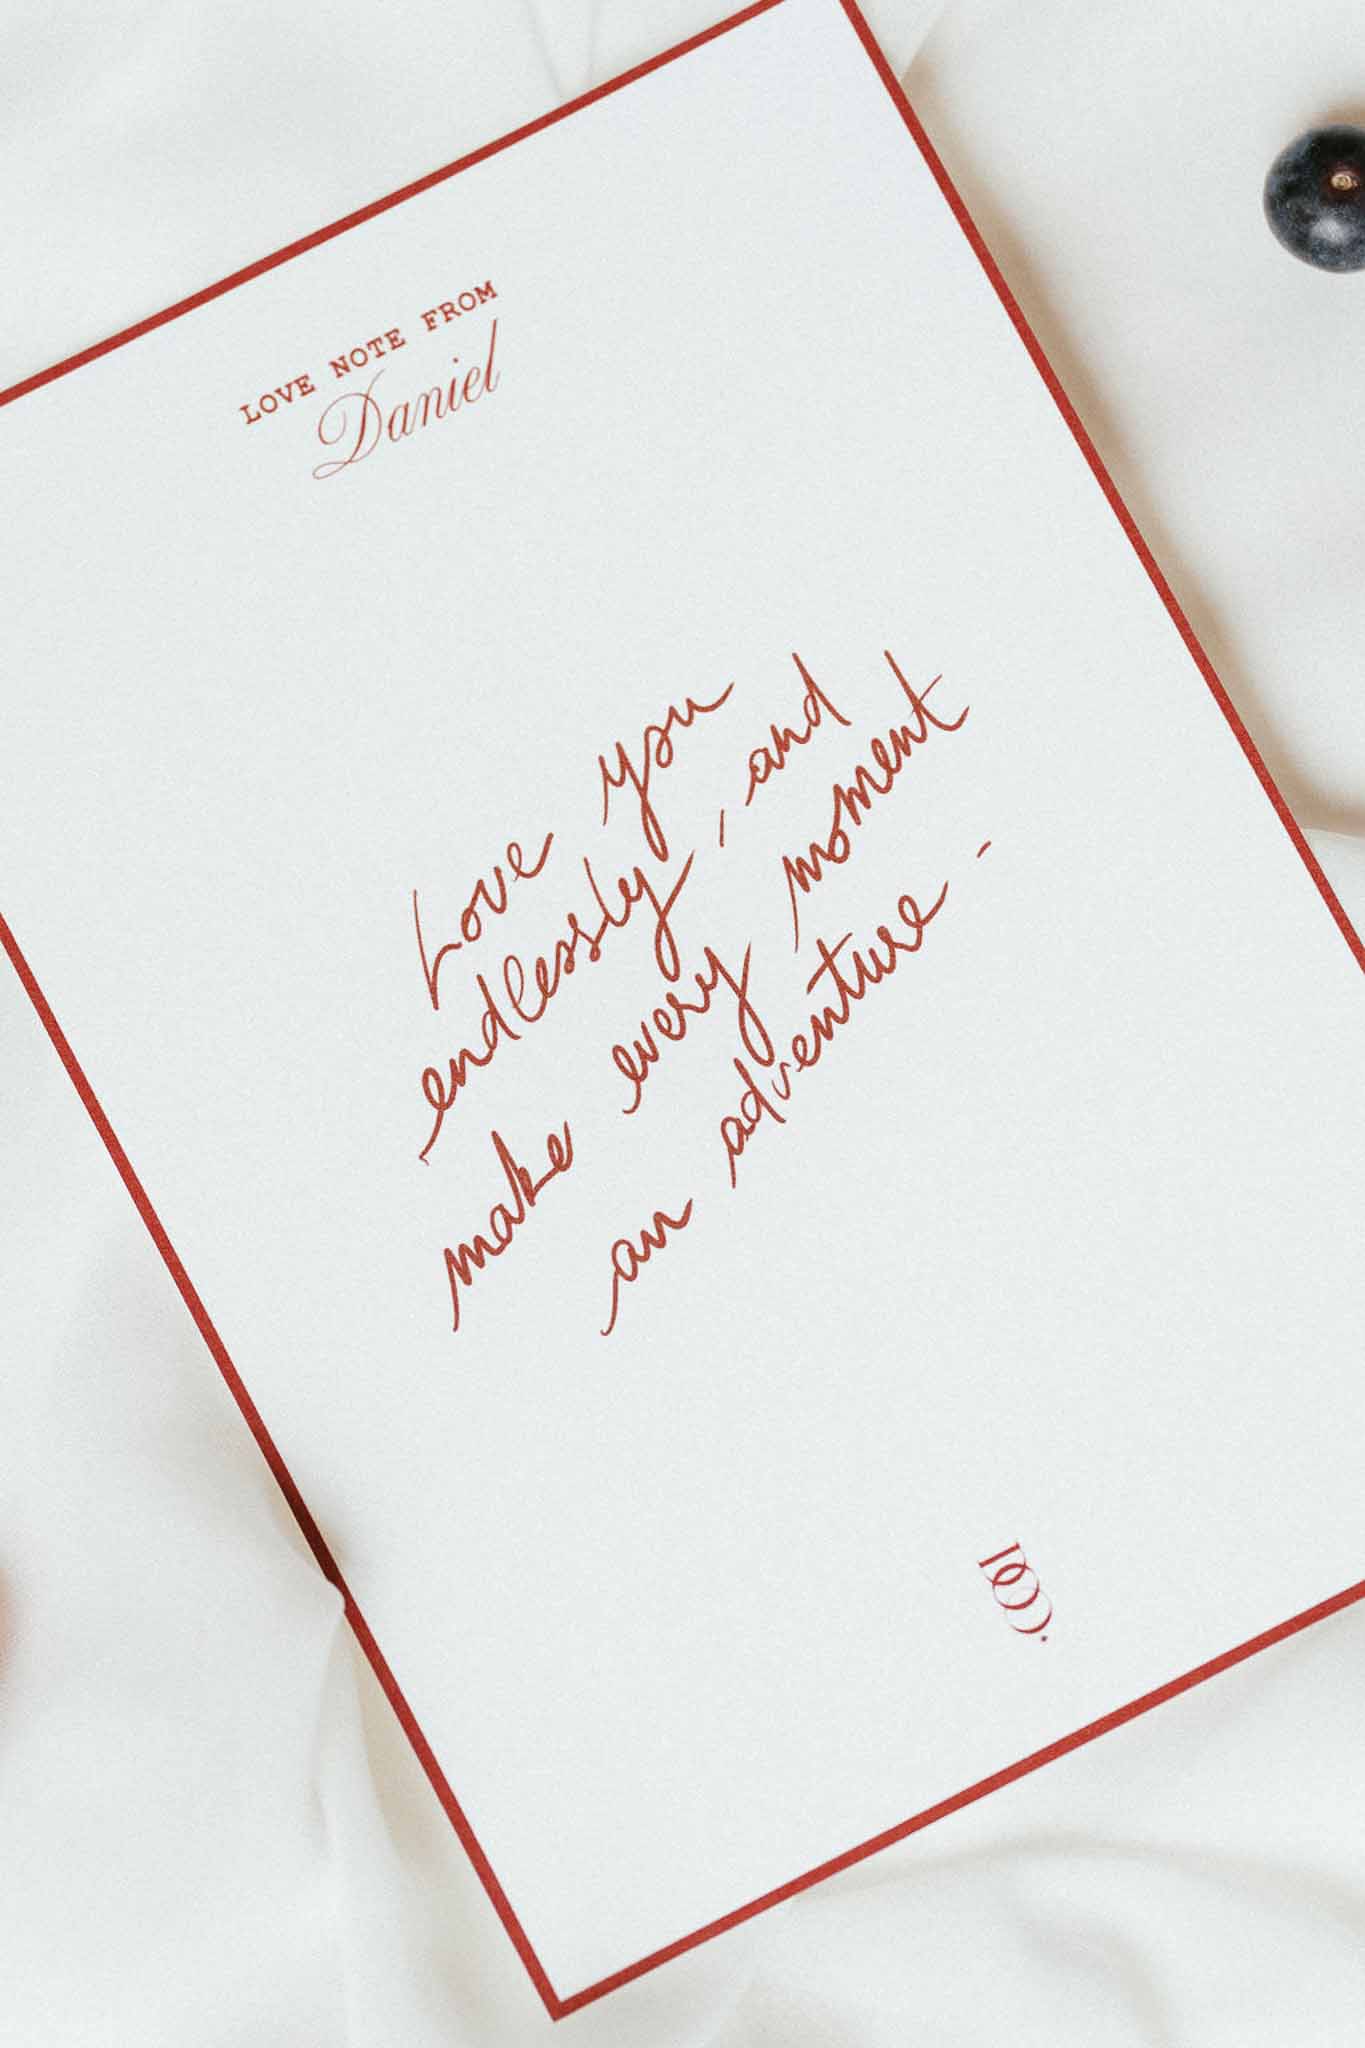 LOVE NOTE FROM
Daniel
Love you
endlessly, and
make every moment
an adventure -